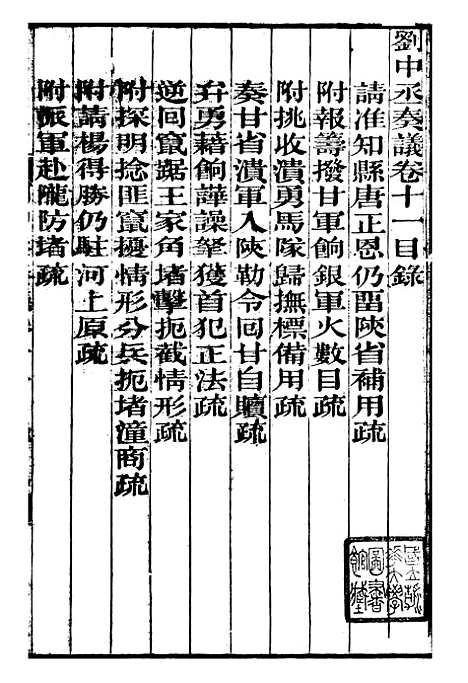 劉中丞奏議卷十一目錄
請准知縣唐正恩仍畱陝省補用疏
附報籌撥甘軍餉銀軍火數目疏
附挑收潰勇馬隊歸撫標備用疏
奏甘省潰軍入陝勒令囘甘自贖疏
弁勇藉餉譁譟拏獲首犯正法疏
逆囘竄踞王家角堵擊扼截情形疏
附探明捻匪竄擾情形分兵扼堵潼商疏
附請楊得勝仍駐河上原疏
附派軍赴隴防堵疏